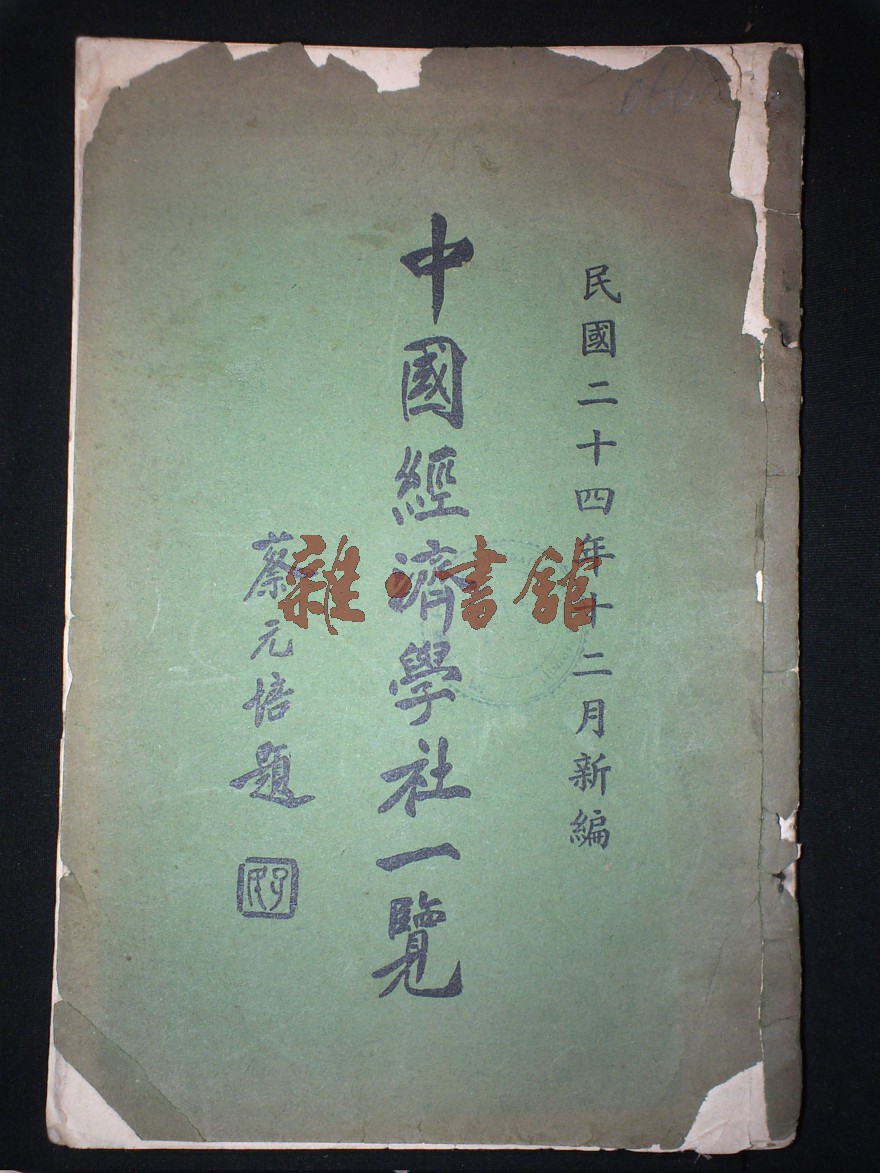 民國二十四年十二月新編
中國經濟學社一覽
蔡元培題
孑民
雜·書館